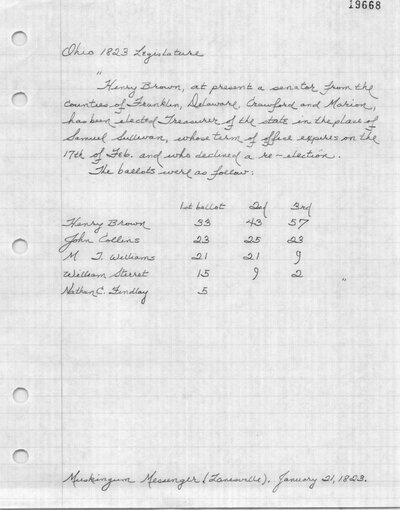 19668
Ohio 1823 Legislature
"Henry Brown, at present a senator from the
counties of Franklin, Delaware, Crawford and Marion,
has been elected Treasurer of the state in the place of
Samuel Sullivan, whose term of office expires on the
17th of Feb. and who declined a re-election.
The ballots were as follow:
1st ballot 2d 3rd
Henry Brown 33 43 57
John Collins 23 25 23
M T. Williams 21 21 9
William Sterret 15 9 2 "
Nathan C. Findlay 5
Muskingum Messenger (Zanesville), January 21, 1823.